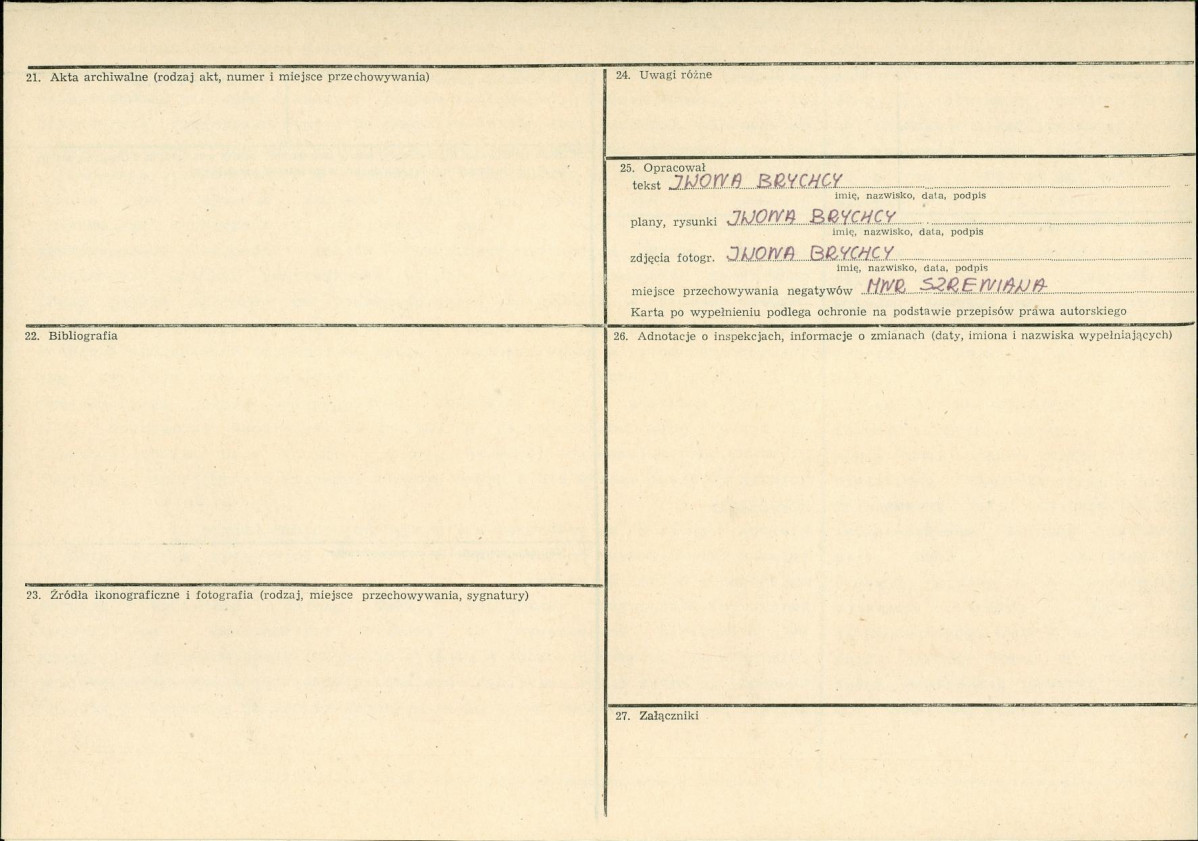 21. Akta archiwalne (rodzaj akt, numer i miejsce przechowywania)
22. Bibliografia
23. Źródła ikonograficzne i fotografia (rodzaj, miejsce przechowywania, sygnatury)
24. Uwagi różne
25. Opracował
tekst IWONA BRYCHCY
imię, nazwisko, data, podpis
plany, rysunki IWONA BRYCHCY
imię, nazwisko, data, podpis
zdjęcia fotogr. IWONA BRYCHCY
imię, nazwisko, data, podpis
miejsce przechowywania negatywów MNR SZRENIAWA
Karta po wypełnieniu podlega ochronie na podstawie przepisów prawa autorskiego
26. Adnotacje o inspekcjach, informacje o zmianach (daty, imiona i nazwiska wypełniających)
27. Załączniki